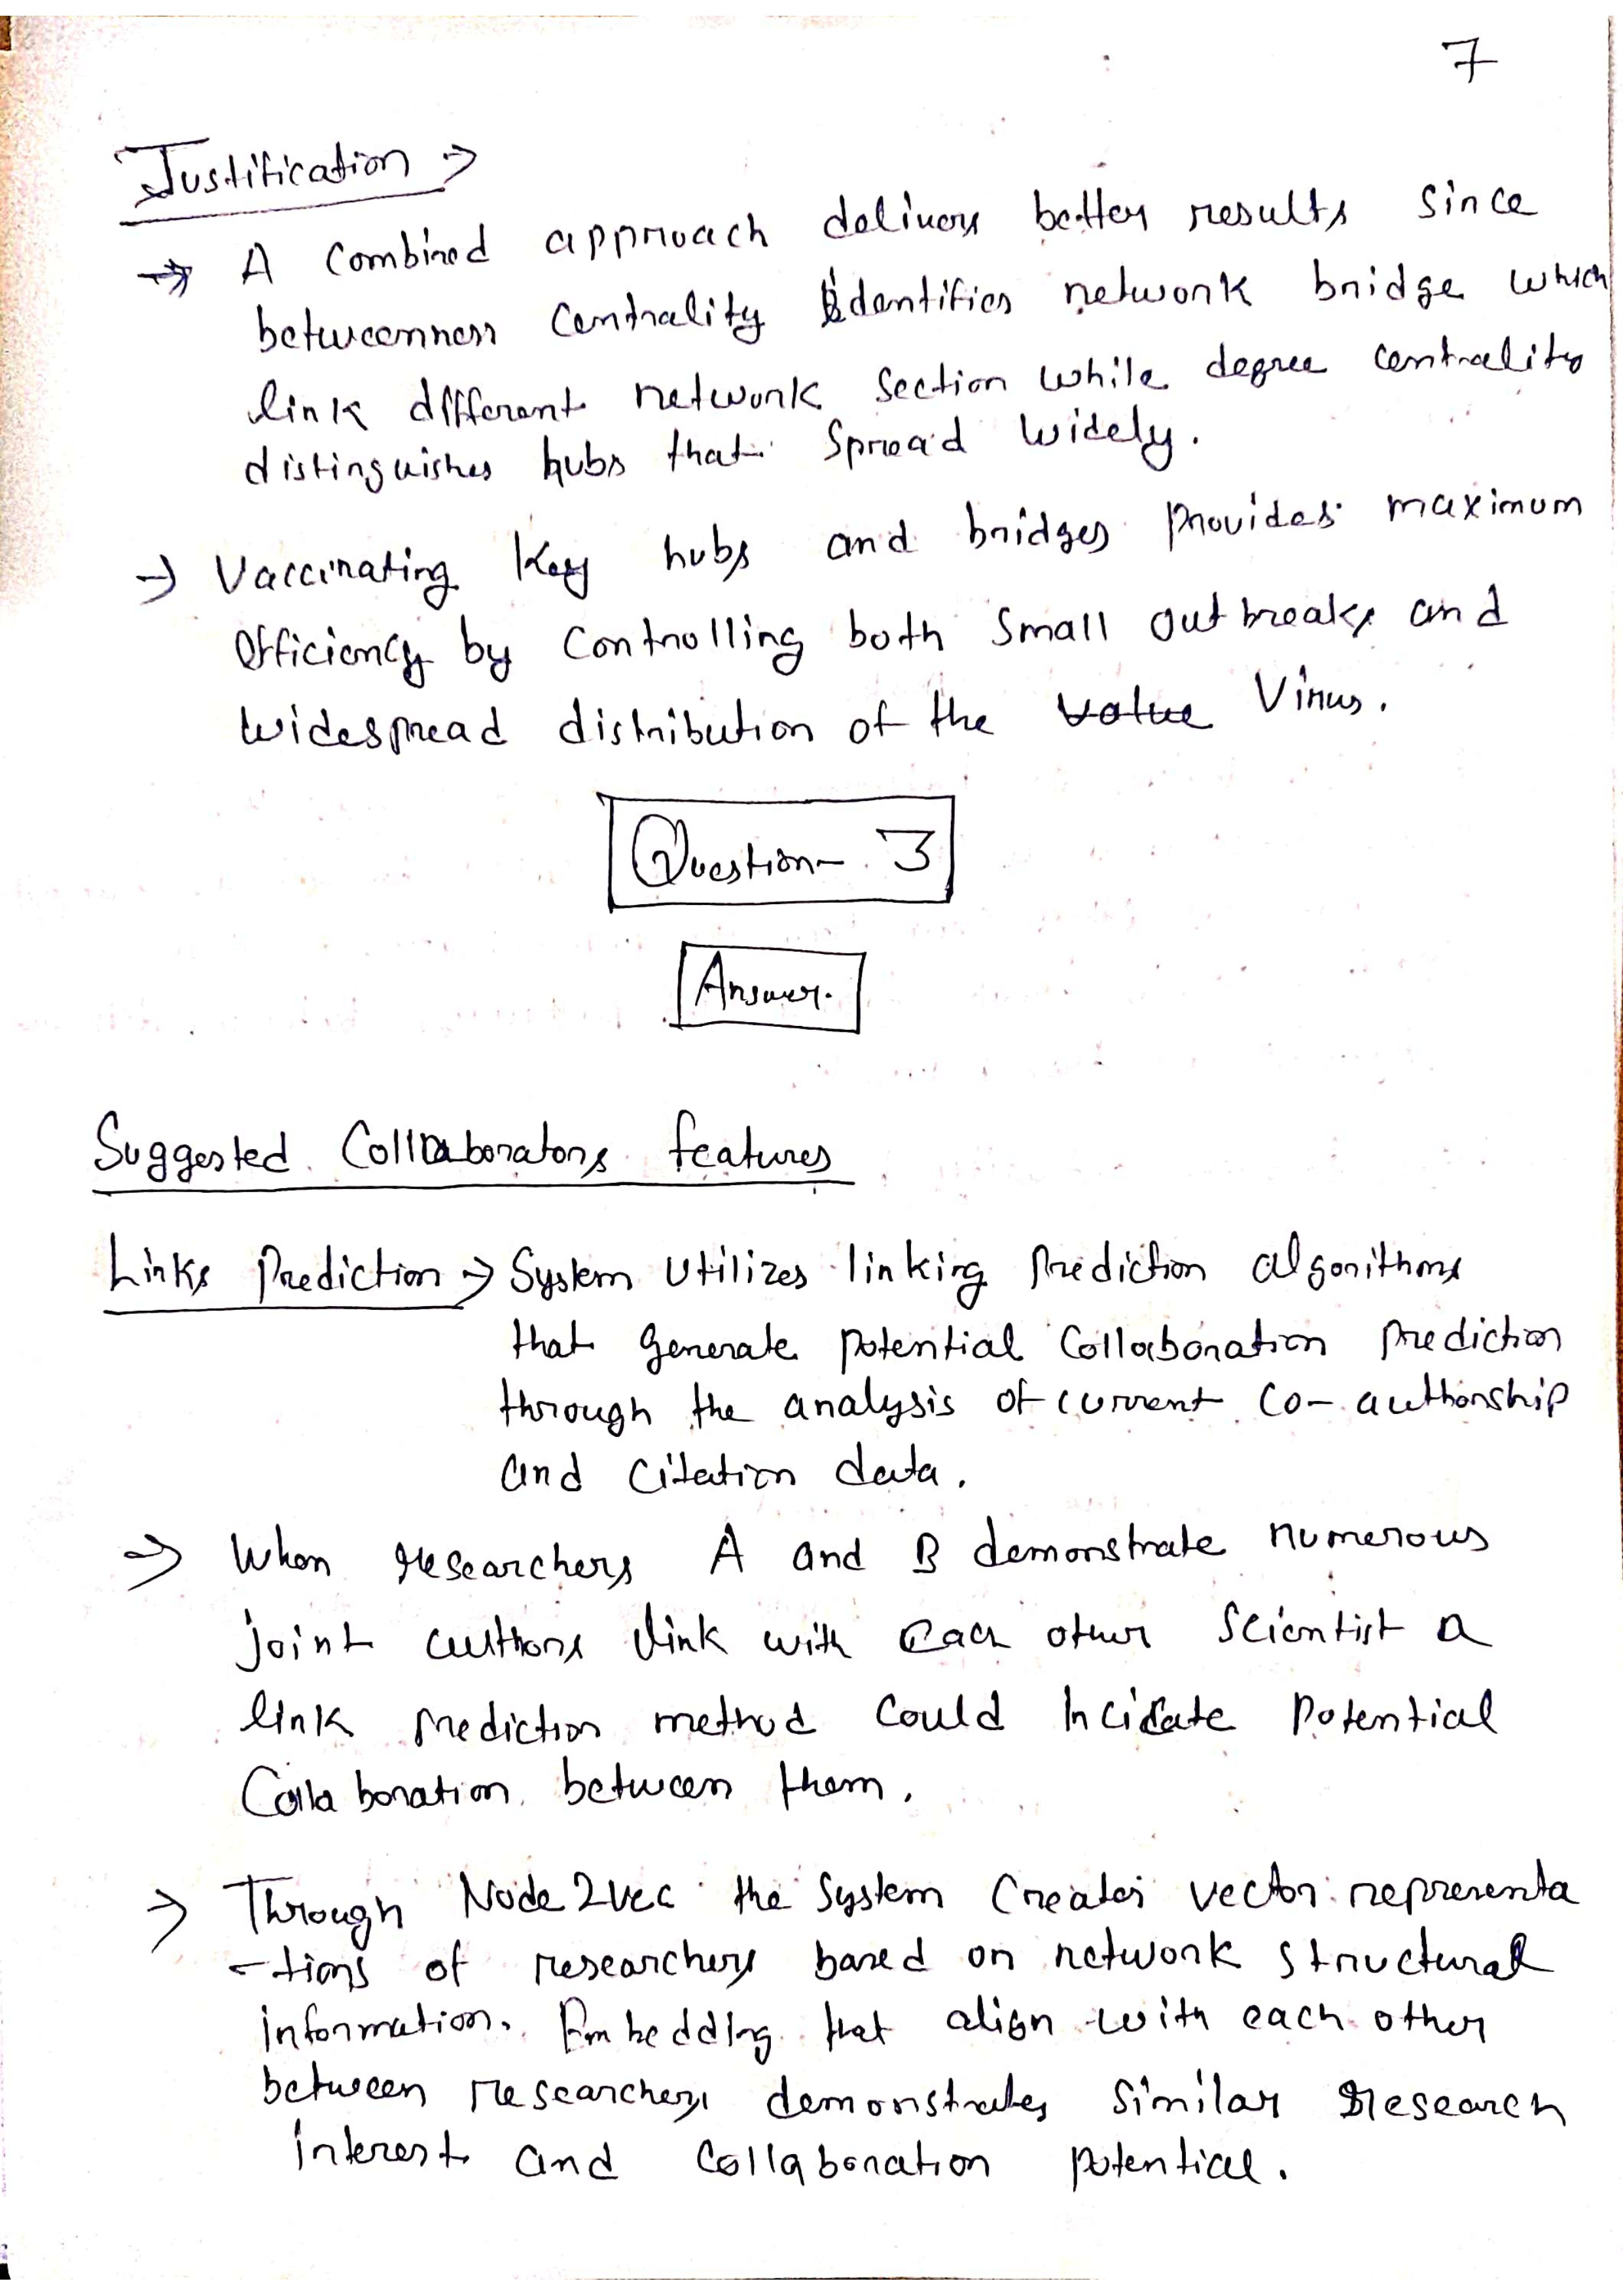 7
Justification →
→ A Combined approach delivers better results since
betweenness Centrality identifies network bridge which
link different network section while degree centrality
distinguishes hubs that spread widely.
→ Vaccinating Key hubs and bridges provides maximum
efficiency by controlling both small outbreaks and
widespread distribution of the value Virus.
Question- 3
Answer.
Suggested Collaborators features
Links Prediction → System utilizes linking prediction algorithms
that generate potential collaboration prediction
through the analysis of current co-authorship
and citation data.
→ When researchers A and B demonstrate numerous
joint authors link with each other scientist a
link prediction method could incidate potential
Collaboration between them.
→ Through Node2vec the system creates vector representa
-tions of researchers based on network structural
information. Embedding that align with each other
between researchers demonstrates similar research
interest and collaboration potential.